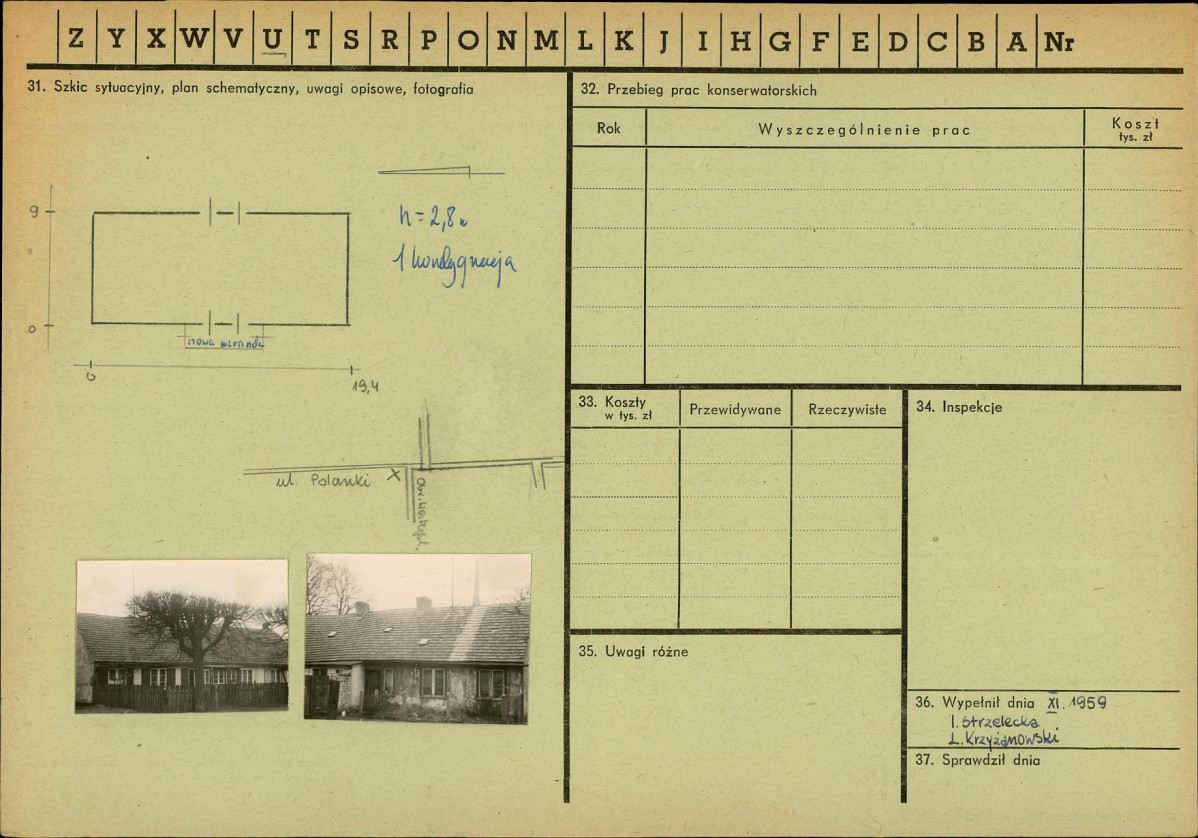 Z Y X W V U T S R P O N M L K J I H G F E D C B A Nr
31. Szkic sytuacyjny, plan schematyczny, uwagi opisowe, fotografia
9
0
h = 2,8 m
1 kondygnacja
nowa weranda
0
19,4
ul. Polanki X
32. Przebieg prac konserwatorskich
Rok
Wyszczególnienie prac
Koszt
tys. zł
33. Koszty
w tys. zł
Przewidywane
Rzeczywiste
34. Inspekcje
35. Uwagi różne
36. Wypełnił dnia XI. 1959
I. Strzelecka
L. Krzyżanowski
37. Sprawdził dnia